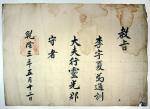 教旨
李宇夏爲通訓
大夫行靈光郡
守者
乾隆三年五月十一日